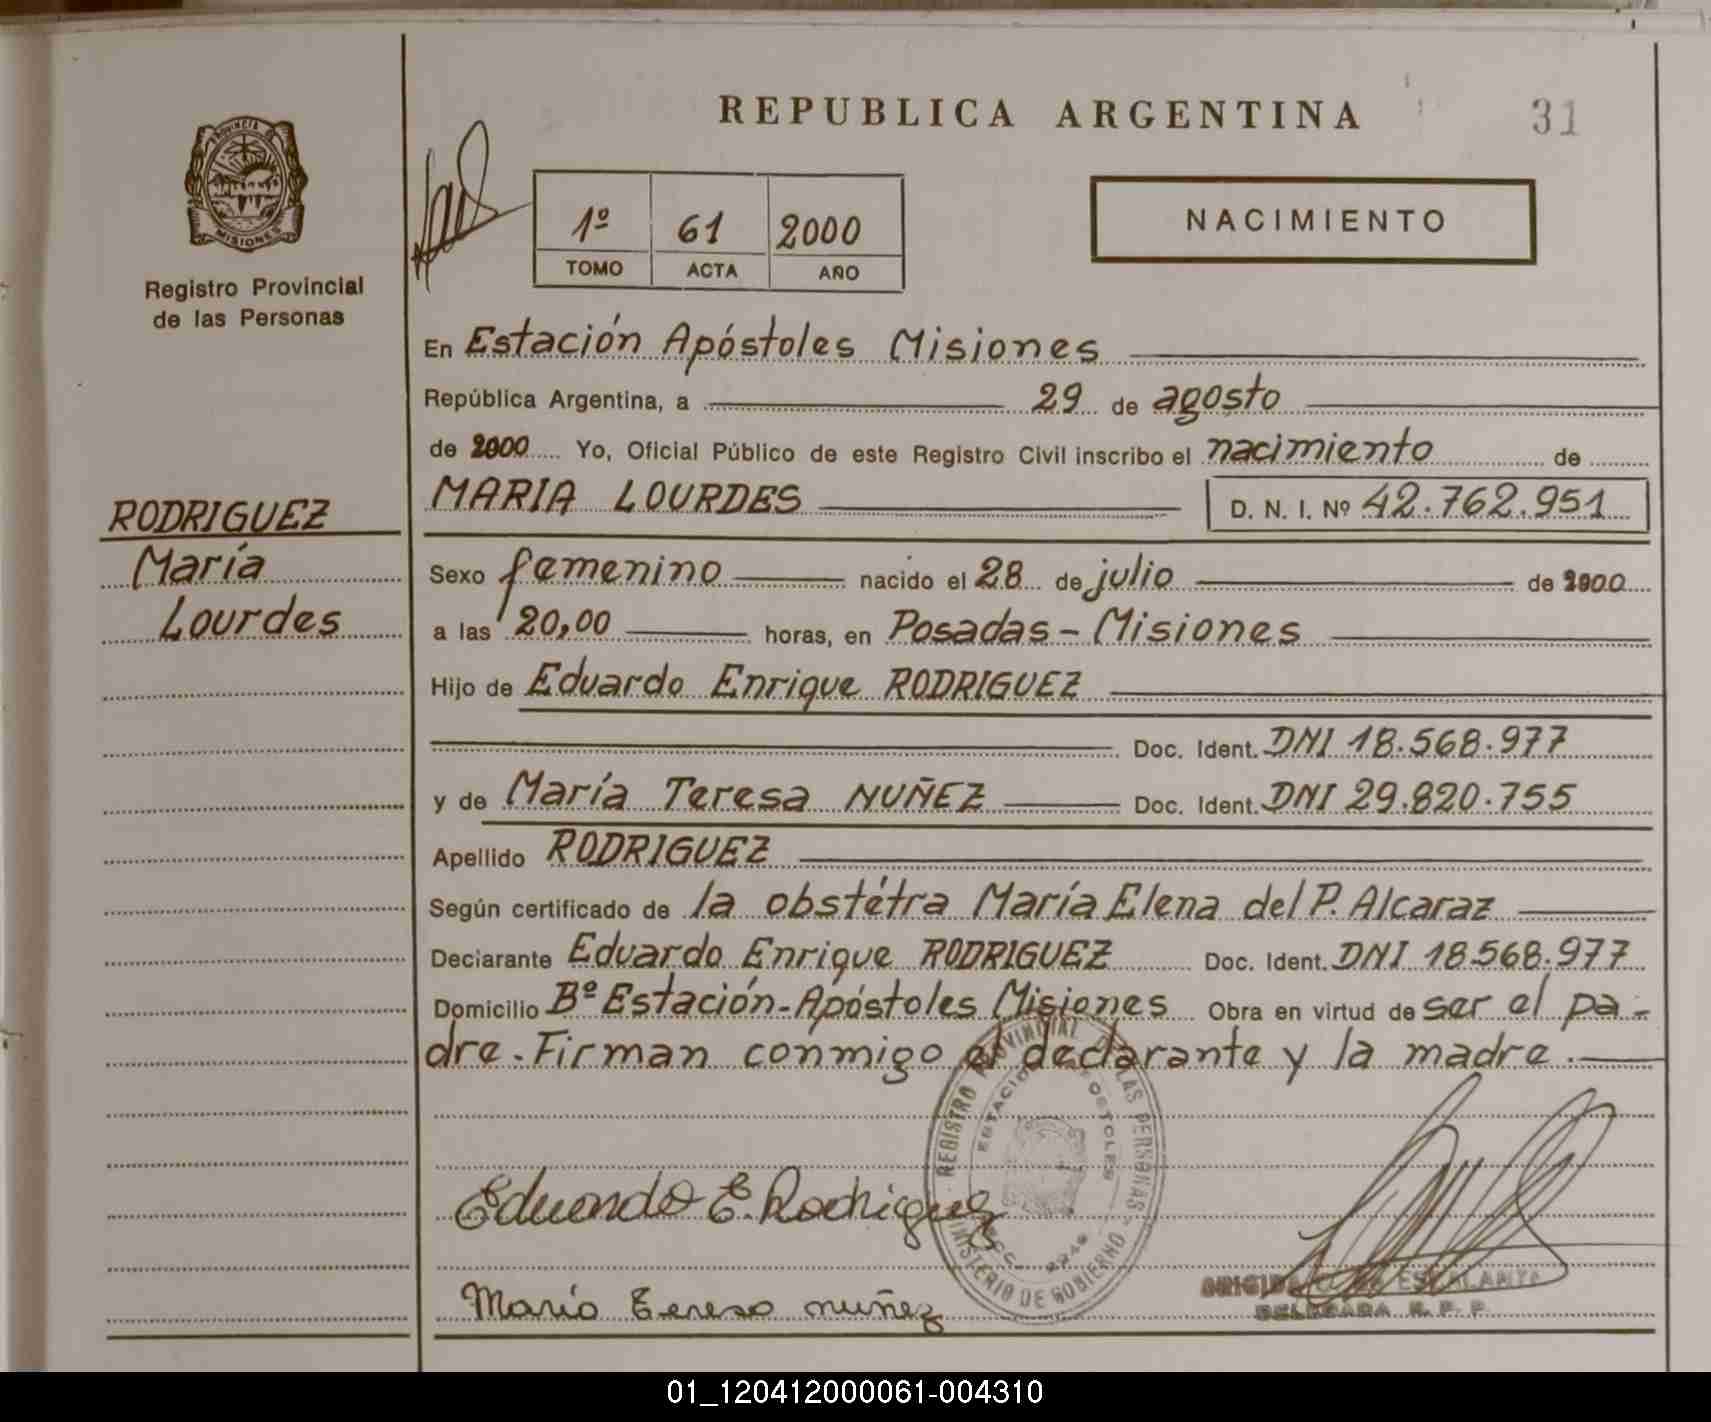 REPUBLICA ARGENTINA
31
PROVINCIA DE
MISIONES
Registro Provincial
de las Personas
1º 61 2000
TOMO ACTA AÑO
NACIMIENTO
En Estación Apóstoles Misiones
República Argentina, a 29 de agosto
de 2000 Yo, Oficial Público de este Registro Civil inscribo el nacimiento de
MARIA LOURDES D. N. I. Nº 42.762.951
RODRIGUEZ
María
Lourdes
Sexo femenino nacido el 28 de julio de 2000
a las 20,00 horas, en Posadas - Misiones
Hijo de Eduardo Enrique RODRIGUEZ
Doc. Ident. DNI 18.568.977
y de María Teresa NUÑEZ Doc. Ident. DNI 29.820.755
Apellido RODRIGUEZ
Según certificado de la obstétra María Elena del P. Alcaraz
Declarante Eduardo Enrique RODRIGUEZ Doc. Ident. DNI 18.568.977
Domicilio Bº Estación-Apóstoles Misiones Obra en virtud de ser el pa-
dre. Firman conmigo el declarante y la madre.
REGISTRO PROVINCIAL DE LAS PERSONAS
MINISTERIO DE GOBIERNO
Eduardo E. Rodriguez
María Teresa nuñez
DELEGADA R. P. P.
01_120412000061-004310